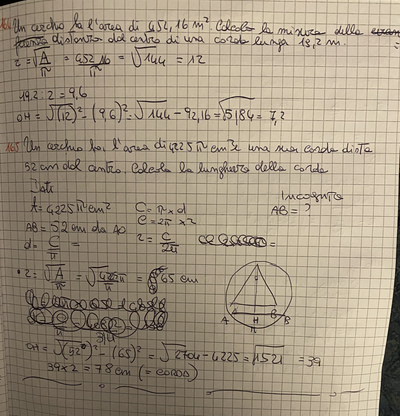 Un cerchio ha l'area di 452,16 m². Calcola la misura della
distanza dal centro di una corda lunga 19,2 m.
r = √A/π = 452,16/π = √144 = 12
19,2 : 2 = 9,6
OH = √(12)² - (9,6)² = √144 - 92,16 = √51,84 = 7,2
165 Un cerchio ha l'area di 4225 π cm² e una sua corda dista
52 cm dal centro. Calcola la lunghezza della corda
Dati
Incognite
A = 4225 π cm² C = π x d
AB = ?
AB = 52 cm da AO C = 2π x 2
d = C/π = r = C/2π =
• r = √A/π = √4225π/π = 65 cm
A H B
OH = √(52)² - (65)² = √2704 - 4225 = √1521 = 39
39 x 2 = 78 cm (= corda)